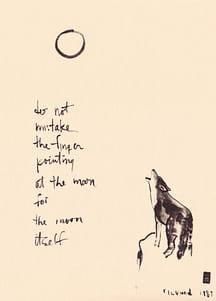 do not
mistake
the finger
pointing
at the moon
for
the moon
itself
1989